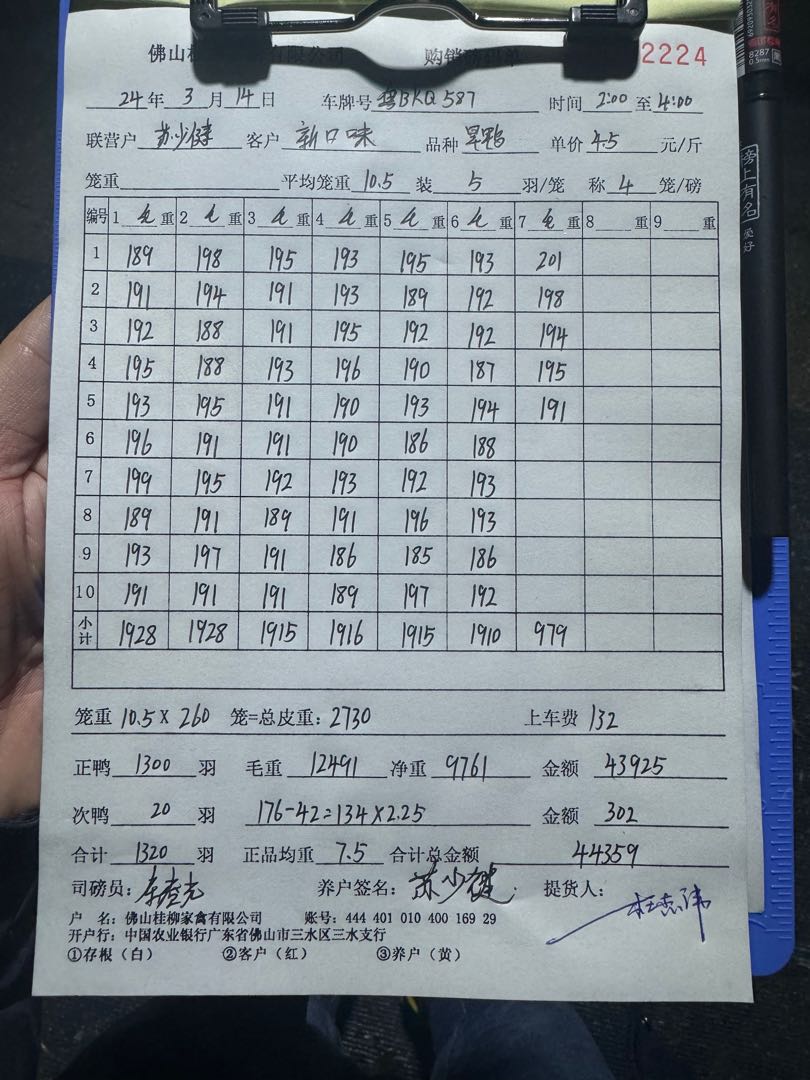 佛山桂 有限公司 购销 2224
24年 3 月 14日 车牌号 BKQ587 时间 2:00 至 4:00
联营户 苏少健 客户 新口味 品种 旱鸭 单价 4.5 元/斤
笼重 平均笼重 10.5 装 5 羽/笼 称 4 笼/磅
编号 1 毛 重 2 毛 重 3 毛 重 4 毛 重 5 毛 重 6 毛 重 7 毛 重 8 重 9 重
1 189 198 195 193 195 193 201
2 191 194 191 193 189 192 198
3 192 188 191 195 192 192 194
4 195 188 193 196 190 187 195
5 193 195 191 190 193 194 191
6 196 191 191 190 186 188
7 199 195 192 193 192 193
8 189 191 189 191 196 193
9 193 197 191 186 185 186
10 191 191 191 189 197 192
小计 1928 1928 1915 1916 1915 1910 979
笼重 10.5 X 260 笼=总皮重: 2730 上车费 132
正鸭 1300 羽 毛重 12491 净重 9761 金额 43925
次鸭 20 羽 176-42=134×2.25 金额 302
合计 1320 羽 正品均重 7.5 合计总金额 44359
司磅员: 养户签名: 苏少健 提货人: 杜志伟
户 名: 佛山桂柳家禽有限公司 账号: 444 401 010 400 169 29
开户行: 中国农业银行广东省佛山市三水区三水支行
①存根(白) ②客户(红) ③养户(黄)
8287
0.5mm
榜上有名
爱好